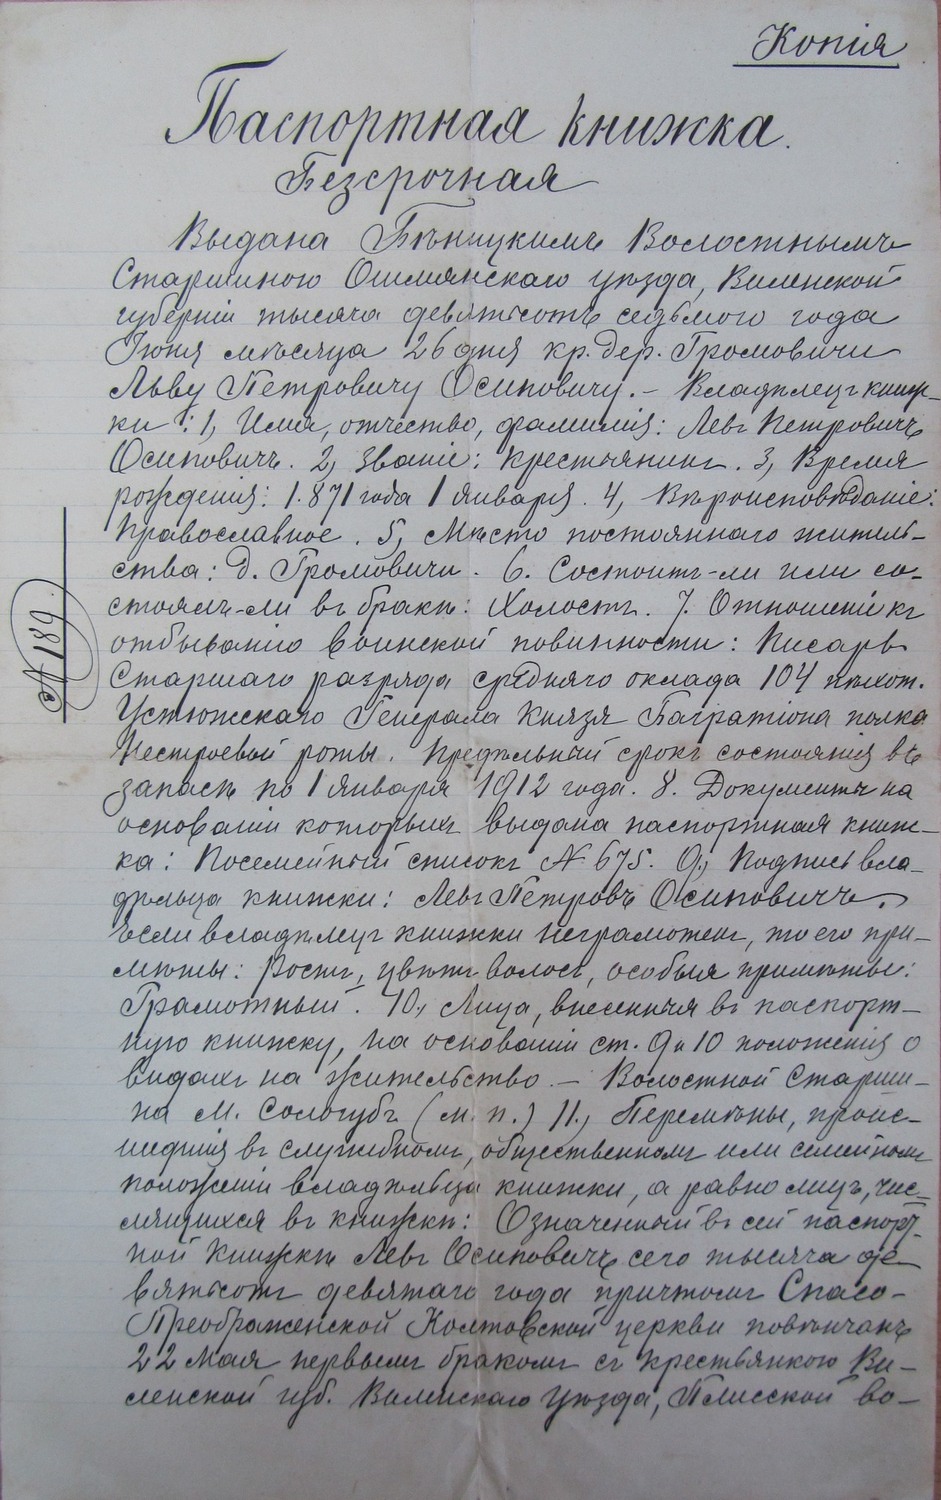 Копія
Паспортная книжка.
Безсрочная
Выдана Бѣницкимъ Волостнымъ
Старшиною Ошмянскаго уѣзда, Виленской
губерніи тысяча девятьсотъ седьмого года
Іюня мѣсяца 26 дня кр. дер. Громовичи
Льву Петровичу Осиповичу. – Владѣлецъ книж-
ки: 1, Имя, отчество, фамилія: Левъ Петровичъ
Осиповичъ. 2, Званіе: крестьянинъ. 3, Время
рожденія: 1.871 года 1 января. 4, Вѣроисповѣданіе:
Православное. 5, Мѣсто постояннаго житель-
ства: д. Громовичи. 6. Состоитъ-ли или со-
стоялъ-ли въ бракѣ: Холостъ. 7. Отношеніе къ
отбыванію воинской повинности: Писарь
Старшаго разряда средняго оклада 104 пѣхот.
Устюжскаго Генерала Князя Багратіона полка
Нестроевой роты. Предѣльный срокъ состоянія въ
запасѣ по 1 Января 1912 года. 8. Документъ на
основаніи которыхъ выдана паспортная книж-
ка: Посемейный списокъ № 675. 9., Подпись вла-
дѣльца книжки: Левъ Петровъ Осиповичъ.
Если владѣлецъ книжки неграмотенъ, то его при-
мѣты: Ростъ, цвѣтъ волосъ, особыя примѣты:
Грамотный. 10., Лица, внесенныя въ паспорт-
ную книжку, на основаніи ст. 9 и 10 положенія о
видахъ на жительство. – Волостной Старши-
на М. Сологубъ (м. п.) 11., Перемѣны, проис-
шедшія въ служебномъ, общественномъ или семейномъ
положеніи владѣльца книжки, а равно лицъ, чис-
лящихся въ книжкѣ: Означенный въ сей паспорт-
ной книжкѣ Левъ Осиповичъ сего тысяча де-
вятьсотъ девятаго года причтомъ Спасо-
Преображенской Колтовской церкви повѣнчанъ
22 Мая первымъ бракомъ съ крестьянкою Ви-
ленской губ. Виленскаго уѣзда, во-
№ 189.